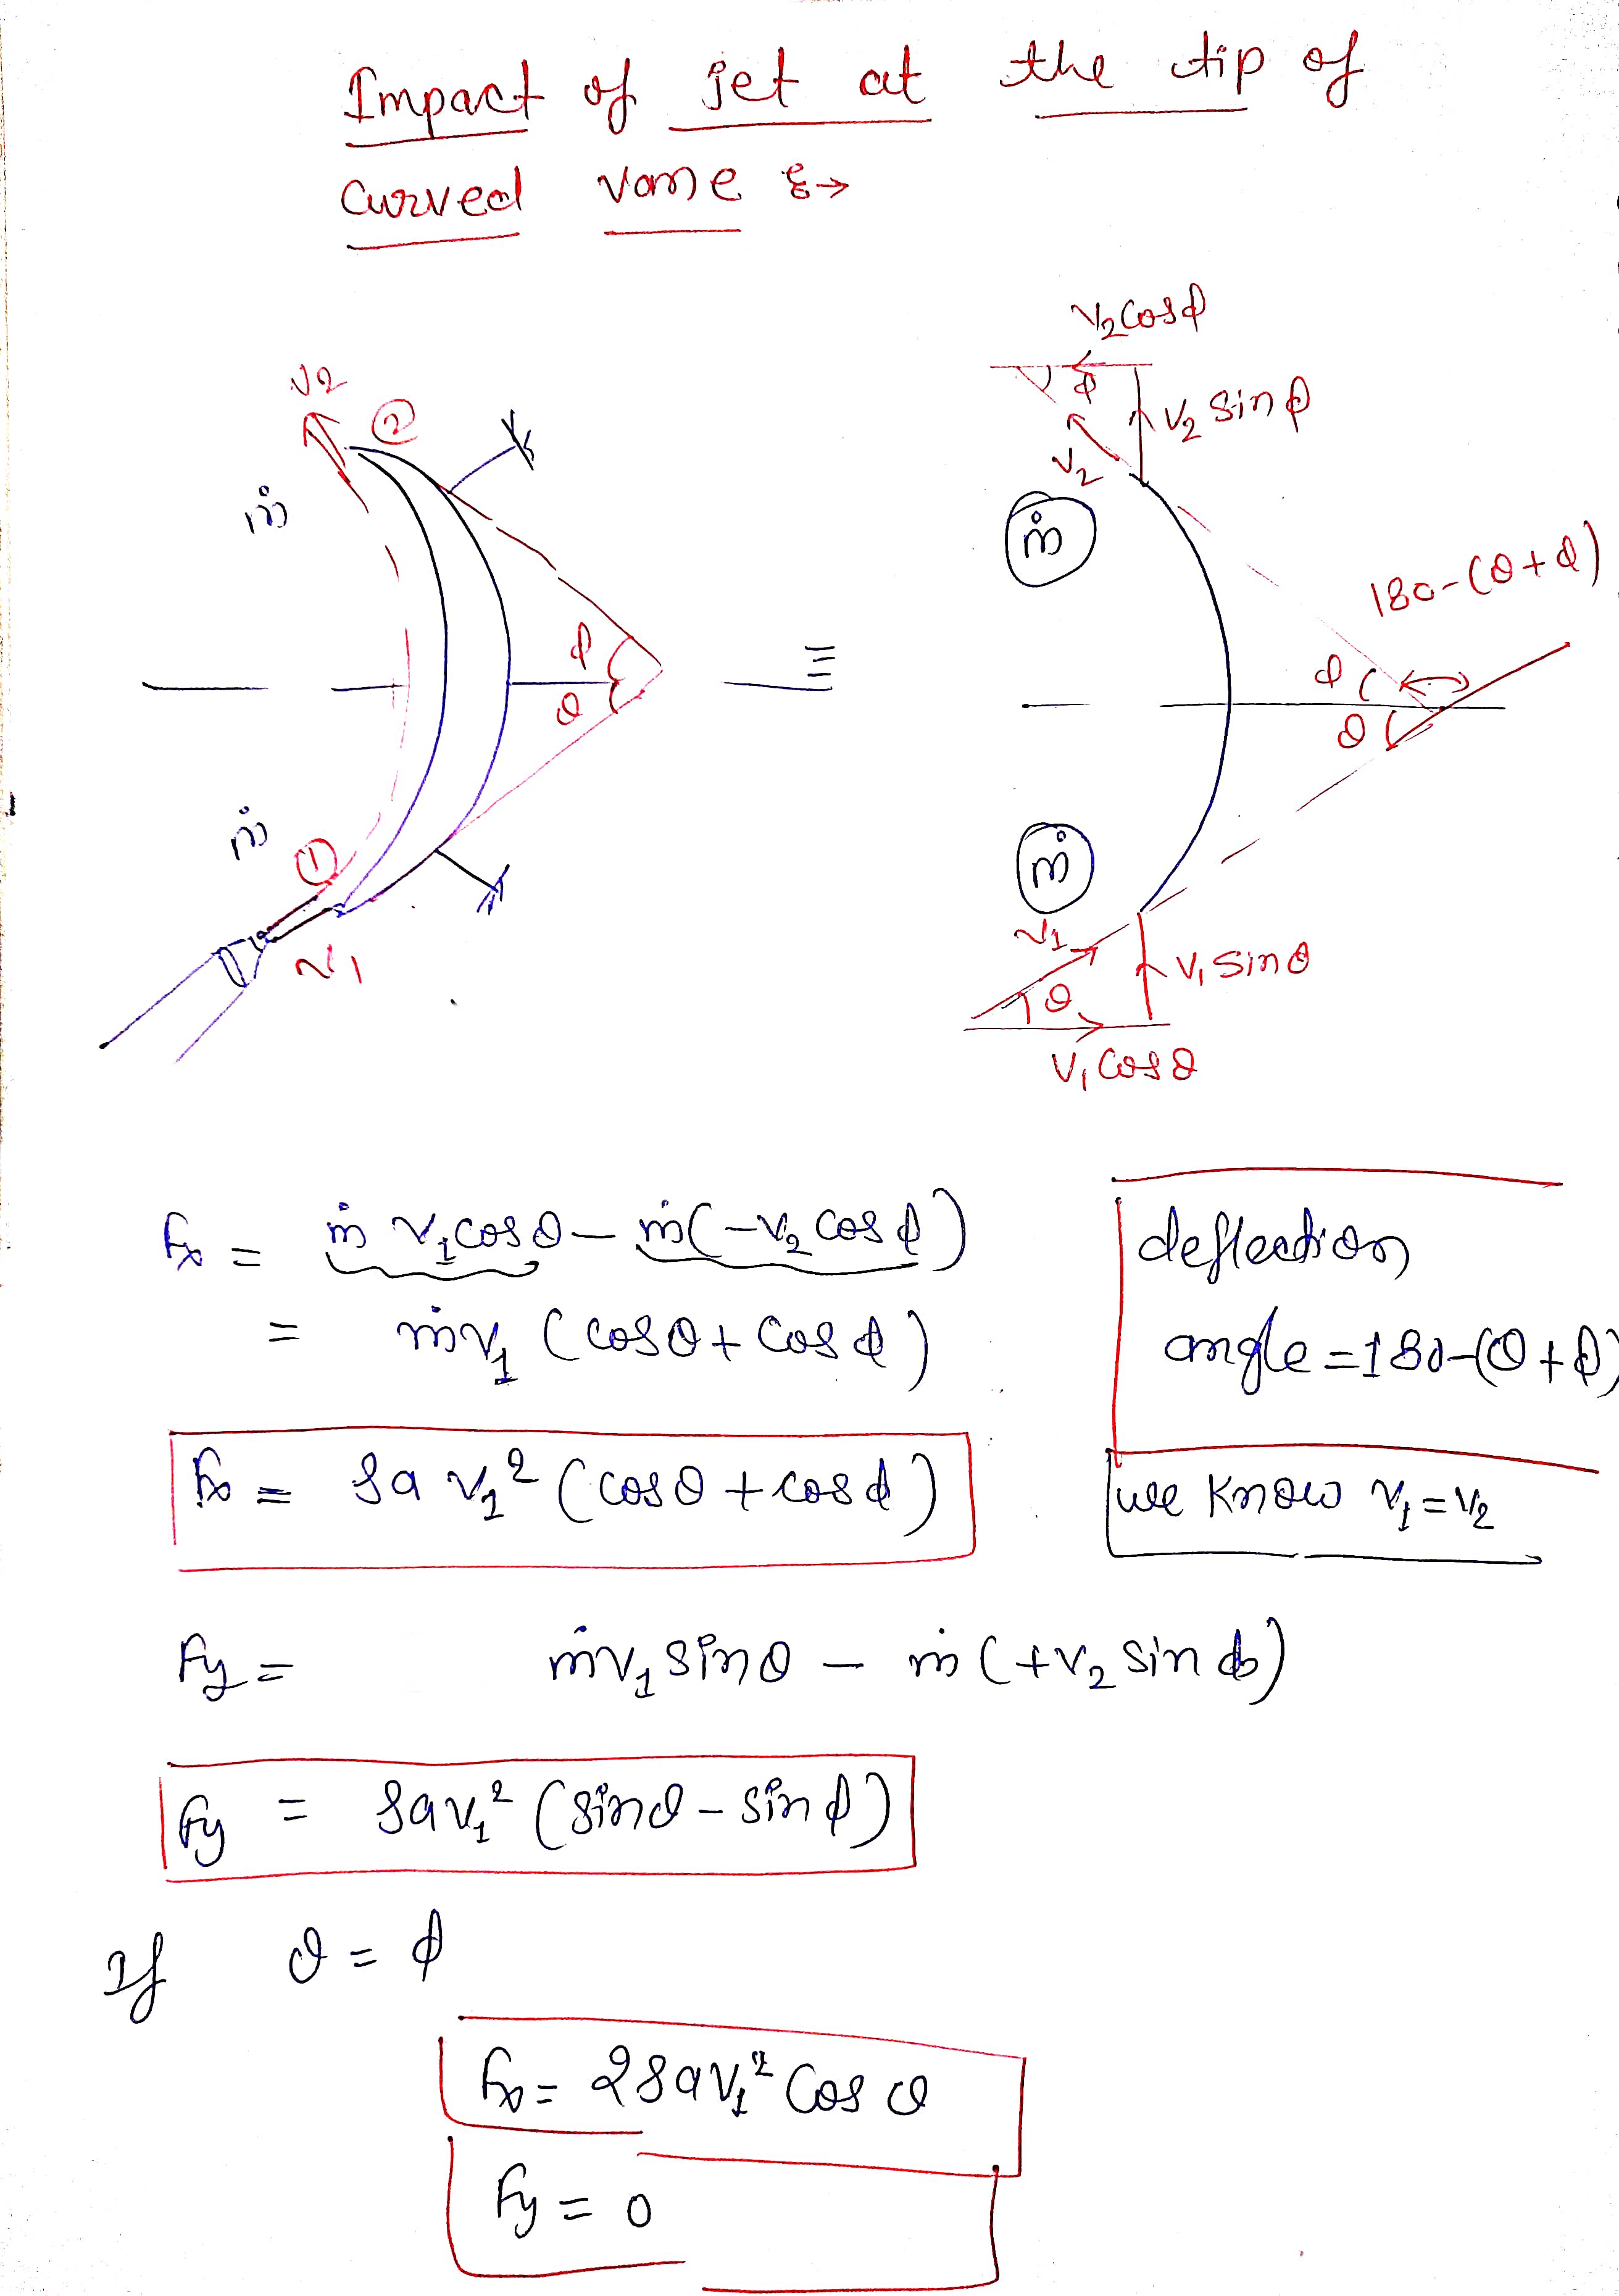 Impact of jet at the tip of
Curved Vane :→
V2
②
ṁ
ϕ
θ
≡
ṁ
①
V1
V2 Cosϕ
ϕ
V2 Sinϕ
V2
ṁ
180-(θ+ϕ)
ϕ
θ
ṁ
V1
V1 Sinθ
θ
V1 Cosθ
Fx = ṁ V1 cosθ - ṁ(-V2 cosϕ)
= ṁV1 (cosθ + cosϕ)
deflection
angle = 180-(θ+ϕ)
Fx = ρa V1² (cosθ + cosϕ)
we Know V1 = V2
Fy = ṁV1 sinθ - ṁ(+V2 sinϕ)
Fy = ρaV1² (sinθ - sinϕ)
If θ = ϕ
Fx = 2ρaV1² Cosθ
Fy = 0